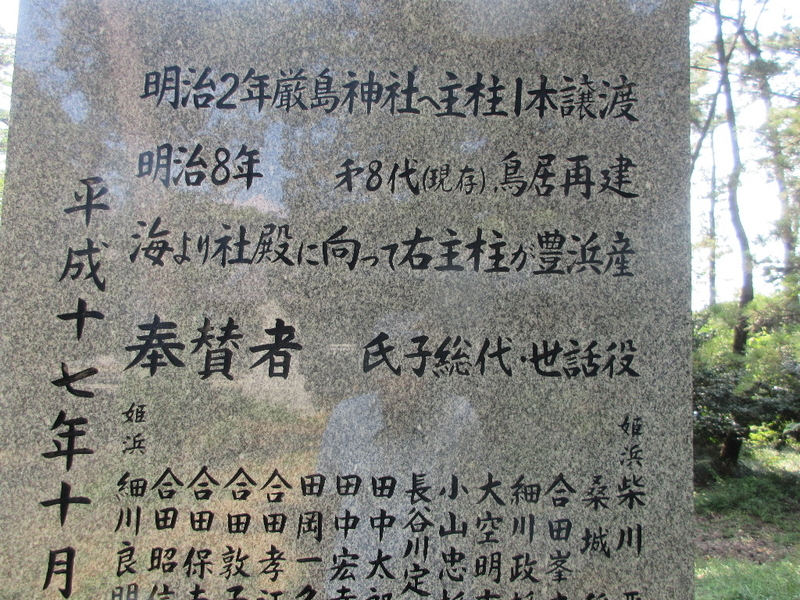 明治2年厳島神社へ主柱1本譲渡
明治8年 㐧8代(現存),鳥居再建
海より社殿に向って右主柱が豊浜産
奉賛者 氏子総代・世話役
姫浜
柴川
桑城
合田峯
細川政
大空明
小山忠
長谷川定
田中太郎
田中宏
田岡一
合田孝江
合田敦子
合田保
合田昭信
姫浜
細川良明
平成十七年十月